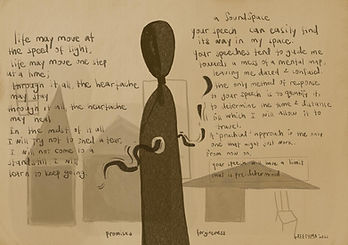 life may move at
the speed of light,
life may move one step
at a time,
through it all, the heartache
may stay
through it all, the heartache
may heal
In the midst of it all
I will try not to shed a tear,
I will not come to a
standstill. I will
learn to keep going.
a Soundspace
your speech can easily find
its way in my space.
your speeches tend to guide me
towards a mess of a mental map,
leaving me dazed & confused
the only method of response
to your speech is to quantify it
to determine the time & distance
for which I will allow it to
travel.
A "practical" approach is the only
one that might just work.
From now on,
your speech will have a limit
that is pre-determined
promises
forgiveness